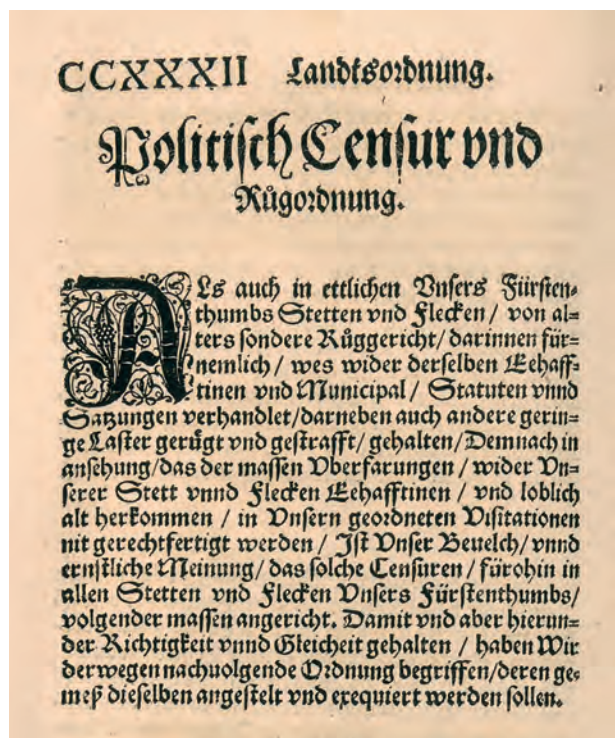 CCXXXII Landtsordnung.
Politisch Censur vnd
Růgordnung.
ALs auch in ettlichen Vnsers Fürsten-
thumbs Stetten vnd Flecken / von al=
ters sondere Rüggericht / darinnen für=
nemlich / wes wider derselben Eehaff=
tinen vnd Municipal / Statuten vnnd
Satzungen verhandlet / darneben auch andere gerin=
ge Laster gerůgt vnd gestrafft / gehalten / Demnach in
ansehung / das der massen Vberfarungen / wider Vn=
serer Stett vnnd Flecken Eehafftinen / vnd loblich
alt herkommen / in Vnsern geordneten Visitationen
nit gerechtfertigt werden / Ist Vnser Beuelch / vnnd
ernstliche Meinung / das solche Censuren / fürohin in
allen Stetten vnd Flecken Vnsers Fürstenthumbs /
volgender massen angericht. Damit vnd aber hierun=
der Richtigkeit vnnd Gleicheit gehalten / haben Wir
derwegen nachuolgende Ordnung begriffen / deren ge=
meß dieselben angestelt vnd exequiert werden sollen.